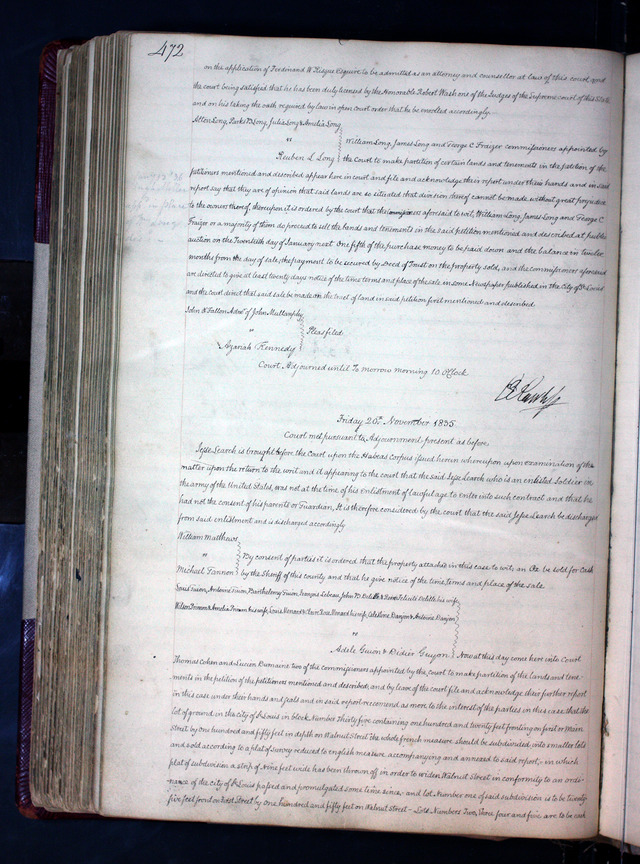 472
on the application of Ferdinand W Risque Esquire to be admitted as an attorney and counsellor at law of this court and
the court being satisfied that he has been duly licensed by the Honorable Robert Wash one of the Judges of the Supreme court of this State
and on his taking the oath required by law in open court order that he be enrolled accordingly.
Allen Long, Parks B Long, Julia Long & Amelia Long
"
Reuben L Long
William Long, James Long and George C Frazer commissioners appointed by
the Court to make partition of certain lands and tenements in the petition of the
petitioners mentioned and described appear here in court and file and acknowledge their report under their hands and in said
report say that they are of opinion that said lands are so situated that division thereof cannot be made without great prejudice
to the owners thereof, thereupon it is ordered by the court that the commissioners aforesaid to wit, William Long, James Long and George C
Frazer or a majority of them do proceed to sell the lands and tenements in the said petition mentioned and described at public
auction on the Twentieth day of January next One fifth of the purchase money to be paid down and the balance in twelve
months from the day of sale, the payment to be secured by Deed of Trust on the property sold, and the commissioners aforesaid
are directed to give at least twenty days notice of the time terms and place of the sale in some Newspaper published in the City of St Louis
and the court direct that said sale be made on the tract of land in said petition first mentioned and described
John O Fallon Admr of John Mullanphy
"
Azariah Kennedy
Pleas filed
Court Adjourned until To morrow morning 10 O'Clock
Friday 20th November 1835
Court met pursuant to Adjournment, present as before,
Jesse Search is brought before the Court upon the Habeas Corpus issued herein whereupon upon examination of the
matter upon the return to the writ and it appearing to the court that the said Jesse Search who is an enlisted Soldier in
the army of the United States, was not at the time of his enlistment of lawful age to enter into such contract and that he
had not the consent of his parents or Guardian, It is therefore considered by the court that the said Jesse Search be discharged
from said enlistment and is discharged accordingly
William Matthews
"
Michael Fannon
By consent of parties it is ordered that the property attached in this case to wit, an Ox be sold for Cash
by the Sheriff of this county and that he give notice of the time, terms and place of the sale
Louis Guion, Antoine Guion, Barthelemy Guion, François Lebeau, John B Delille & Felicité Delille his wife
Louis Menard & his wife, Celestine Danjen & Antoine Danjen
"
Adele Guion & Didier Guyon
Now at this day come here into Court
Thomas Cohen and Lucien Dumaine two of the commissioners appointed by the court to make partition of the lands and tene-
ments in the petition of the petitioners mentioned and described, and by leave of the court file and acknowledge their further report
in this case under their hands and seals and in said report recommend as more to the interest of the parties in this case, that the
lot of ground in the city of St Louis in block Number Thirty five containing one hundred and twenty feet fronting on first or Main
Street by one hundred and fifty feet in depth on Walnut Street the whole french measure should be subdivided into smaller lots
and sold according to a plat of survey reduced to english measure accompanying and annexed to said report, - in which
plat of subdivision a strip of Nine feet wide has been thrown off in order to widen Walnut Street in conformity to an ordi-
nance of the city of St Louis passed and promulgated some time since, - and lot Number one of said subdivision is to be twenty-
five feet front on First Street by one hundred and fifty feet on Walnut Street - Lots Numbers Two, Three four and five are to be each